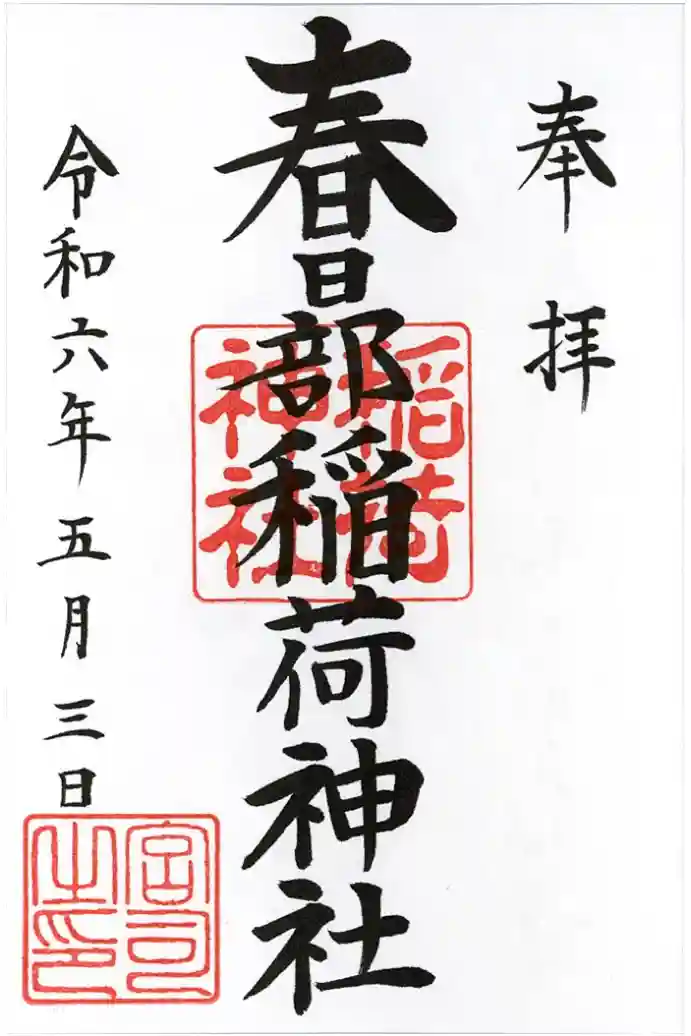 奉拝
春日部稲荷神社
稲荷神社
令和六年五月三日
宮司之印